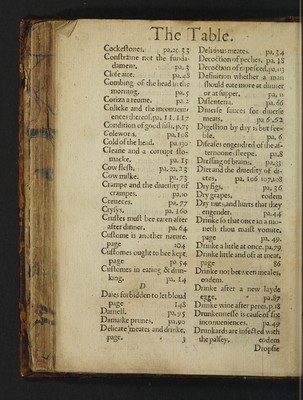 The Table.
Cockestones. pa.15.33
Constraine not the funda-
dament, pa. 3
Close aire. pa.48
Combing of the head in the
morning, pa. 5
Coriza a reume. pa.2
Cockcke and the inconveni-
ences thereof, pa, 11, 117
Condition of good fish, p,75
Colewors, pa,108
Cold of the head. pa.130
Cleane and a corrupt sto-
macke, pa. 15
Cow flesh. pa,22,23
Cow milke. pa.73
Crampe and the diuersity of
crampes, pa,10
Creueces, pa.77
Cryses, pa.160
Crustes must bee eaten after
after dinner, pa.64
Custome is another nature.
page 104
Customes ought to bee kept,
page pa.54
Customes in eating & drin-
king, pa, 14
D
Daies forbidden to let bloud
page 148
Darnell, pa,95
Damaske prunes, pa,90
Delicate meates and drinke,
page, 3
Delirious meates. pa.34
Decoction of peches, pa. 18
Decoction of rose seed, pa,113
Definition whether a man
should eate more at dinner
or at supper, pa,11
Disenteria, pa.66
Diuerse sauces for diuerse
meats, pa 6,52
Digestion by day is but fee-
ble, pa, 6
Diseases engendred of the af-
ternoone sleepe. pa,8
Dressing of brains, pa,33
Diet and the diuersity of di-
etes, pa, 106 107,108
Dry figs, pa, 36
Dry grapes, eodem
Dry nuts, and hurts that they
engender. pa.44
Drinke so that once in a mo-
neth thou maist vomite,
page pa, 49.
Drinke a little at once, pa.79
Drinke little and oft at meat,
page 86
Drinke not betweene meales,
eodem.
Drinke after a new layde
egge. pa,87
Drinke wine after peres, p,18
Drunkennesse is cause of six
inconueniences. pa.49
Drunkards are infected with
the palsey, eodem
Dropsie